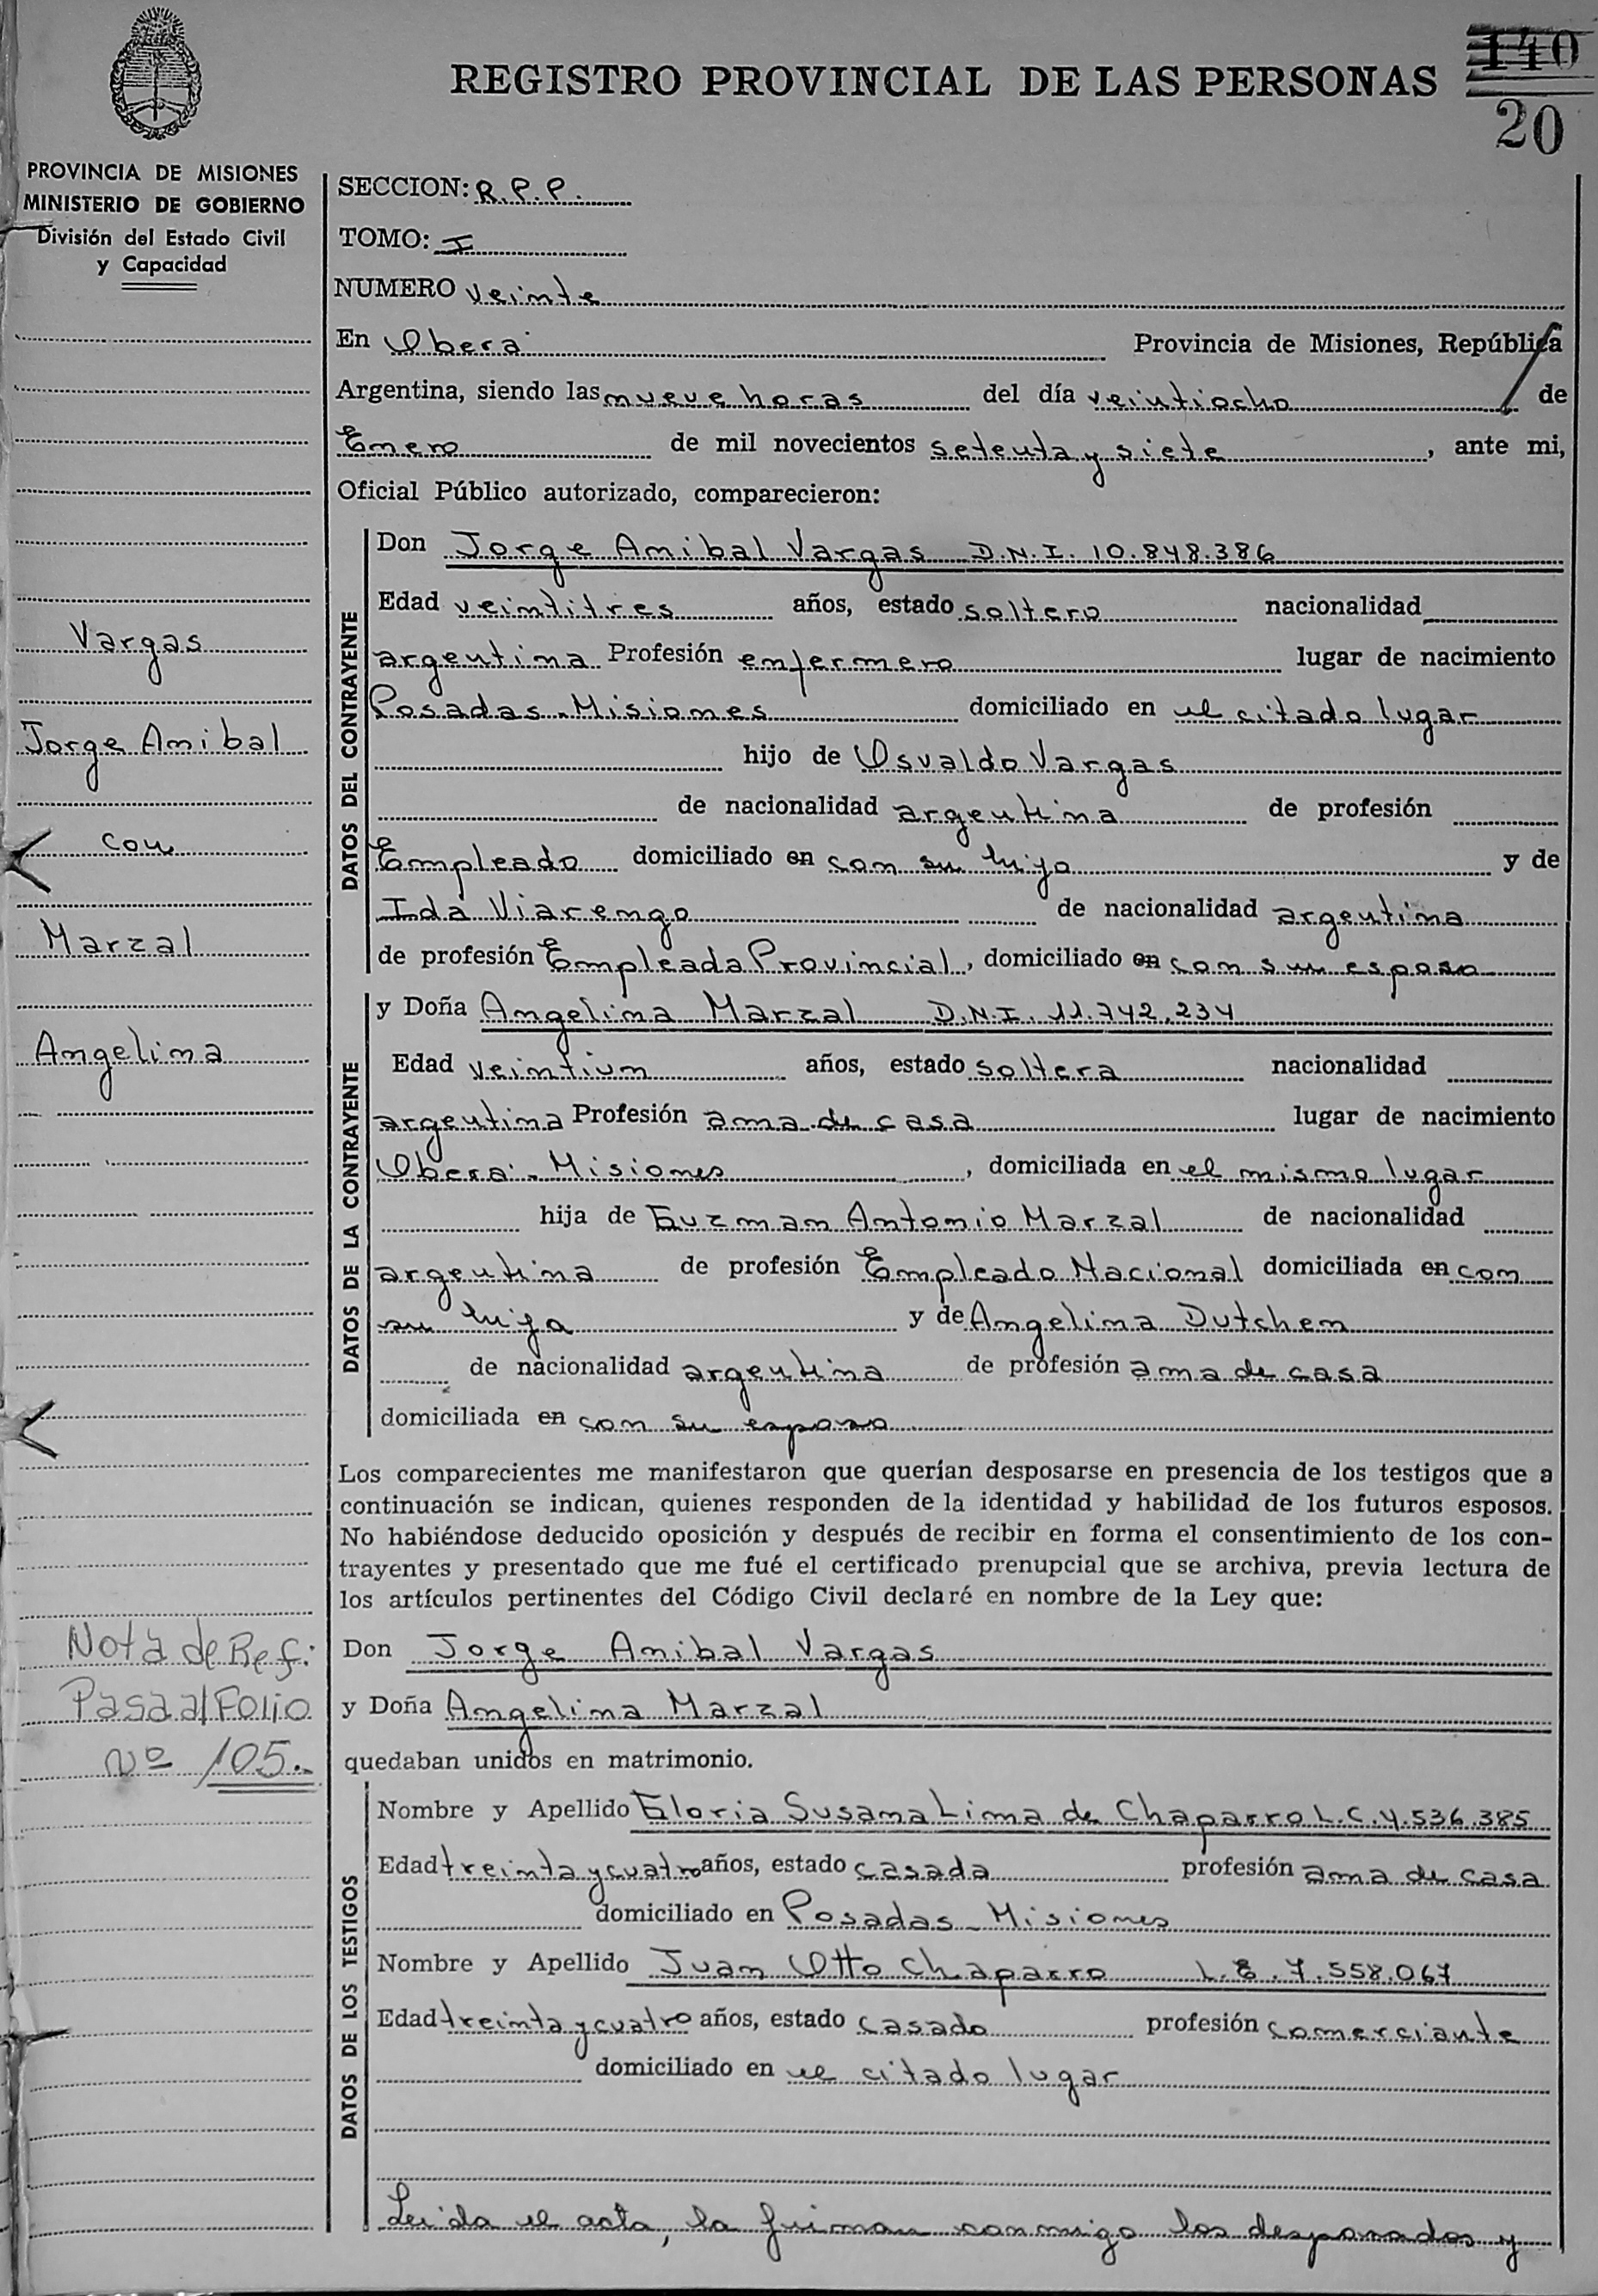 REGISTRO PROVINCIAL DE LAS PERSONAS
140
20
PROVINCIA DE MISIONES
MINISTERIO DE GOBIERNO
División del Estado Civil
y Capacidad
Vargas
Jorge Anibal
con
Marzal
Angelina
Nota de Ref:
Pasa al Folio
Nº 105.-
SECCION: R.P.P.
TOMO: I
NUMERO veinte
En Oberá Provincia de Misiones, República
Argentina, siendo las nueve horas del día veintiocho de
Enero de mil novecientos setenta y siete, ante mi,
Oficial Público autorizado, comparecieron:
DATOS DEL CONTRAYENTE
Don Jorge Anibal Vargas D.N.I. 10.848.386
Edad veintitres años, estado soltero nacionalidad
argentina Profesión enfermero lugar de nacimiento
Posadas - Misiones domiciliado en el citado lugar
hijo de Osvaldo Vargas
de nacionalidad argentina de profesión
Empleado domiciliado en con su hijo y de
Ida Viarengo de nacionalidad argentina
de profesión Empleada Provincial, domiciliado en con su esposo
DATOS DE LA CONTRAYENTE
y Doña Angelina Marzal D.N.I. 11.742.234
Edad veintiun años, estado soltera nacionalidad
argentina Profesión ama de casa lugar de nacimiento
Oberá - Misiones, domiciliada en el mismo lugar
hija de Guzman Antonio Marzal de nacionalidad
argentina de profesión Empleado Nacional domiciliada en con
su hija y de Angelina Dutchen
de nacionalidad argentina de profesión ama de casa
domiciliada en con su esposo
Los comparecientes me manifestaron que querían desposarse en presencia de los testigos que a
continuación se indican, quienes responden de la identidad y habilidad de los futuros esposos.
No habiéndose deducido oposición y después de recibir en forma el consentimiento de los con-
trayentes y presentado que me fué el certificado prenupcial que se archiva, previa lectura de
los artículos pertinentes del Código Civil declaré en nombre de la Ley que:
Don Jorge Anibal Vargas
y Doña Angelina Marzal
quedaban unidos en matrimonio.
DATOS DE LOS TESTIGOS
Nombre y Apellido Gloria Susana Lima de Chaparro L.C. 4.536.385
Edad treinta y cuatro años, estado casada profesión ama de casa
domiciliado en Posadas - Misiones
Nombre y Apellido Juan Otto Chaparro L.E. 7.558.067
Edad treinta y cuatro años, estado casado profesión comerciante
domiciliado en el citado lugar
Leida el acta, la firman conmigo los desposados y